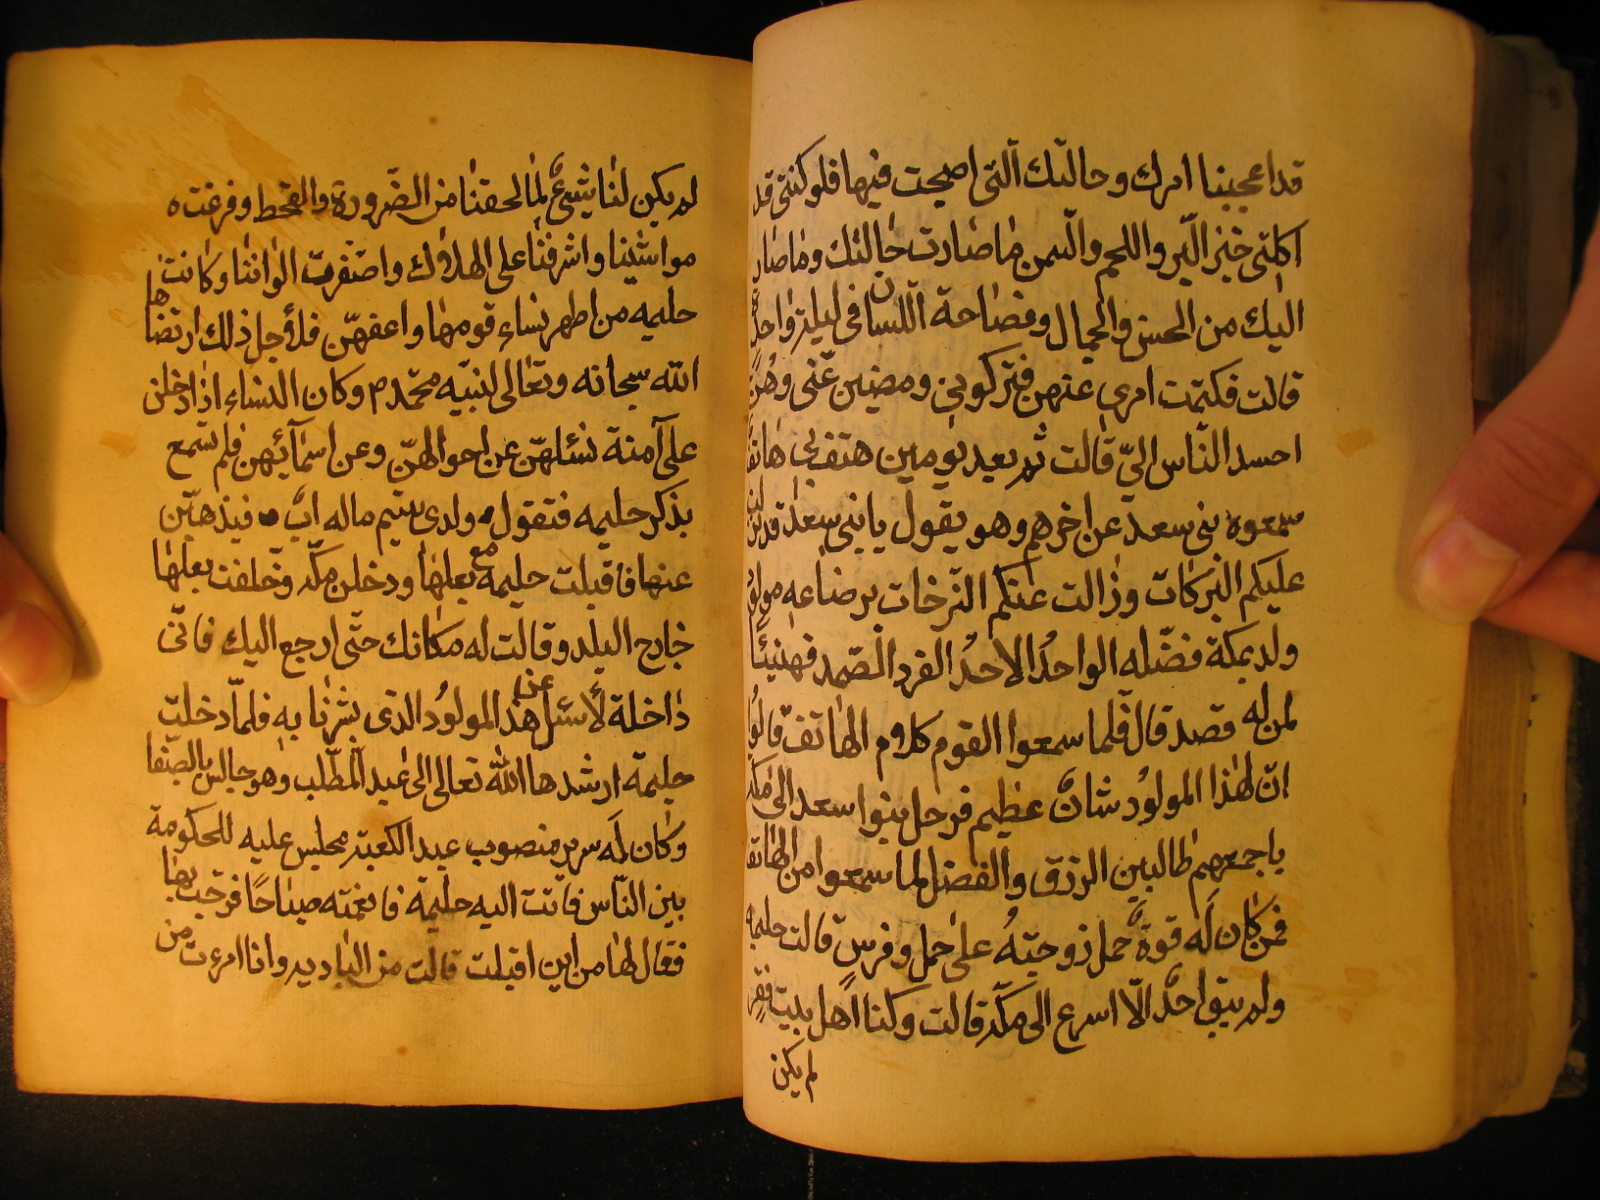 قد اعجبنا امرك وحالتك التى اصبحت فيها فلو كنتى قد
اكلتى خبز البر واللحم والسمن ما صارت حالتك وما صار
اليك من الحسن والجمال وفصاحة اللسان فى ليلة واحدة
قالت فكتمت امرى عنهن فتركونى ومضين عنى وهن
احسد الناس الىّ قالت ثم بعد يومين هتف بى هاتف
سمعوه بنى سعد عن اخرهم وهو يقول يا بنى سعد قد نزلت
عليكم البركات وزالت عنكم الترخات برضاعه مولود
ولد بمكة فضّله الواحدُ الاحدُ الفرد الصّمد فهنيئًا
لمن له قصد قال فلما سمعوا القوم كلام الهاتف قالوُا
انّ لهذا المولوُد شانٌ عظيم فرحل بنوا سعد الى مكة
باجمعهم طالبين الرزق والفضل لما سمعوا من الهاتف
فمن كان لَه قوة حمل زوجتهُ على جمل وفرس قالت حليمه
ولم يبق احدٌ الّا اسرع الى مكّة قالت وكنا اهل بيت فقرٍ
لم يكن
لم يكن لنا شىءٌ لما لحقنا من الضّرورة والقحط وفرغت
مواشينا واشرفنا على الهلاك واصفرت الواننا وكانت
حليمه من اطهر نساء قومها واعفهّن فلأجل ذلك ارتضاها
الله سبحانه وتعالى لنبيّه محمّد م وكان النساء اذا دخلن
على آمنة تسئلهّن عن احوالهنّ وعن اسمآئهن فلم تسمع
بذكر حليمه فتقول ولدى يتيم ماله ابٌ فيذهبّن
عنها فاقبلت حليمه مع بعلها ودخلن مكّه وتخلفت بعلها
خارج البلد وقالت له مكانك حتّى ارجع اليك فانّى
داخلة لأسئل عن هذا المولوُد الذى بشرنا به فلمّا دخلت
حليمة ارشدها الله تعالى الى عبد المطّلب وهو جالس بالصّفا
وكان لَه سرير منصوب عند الكعبة يجلس عليه للحكومة
بين النّاس فاتت اليه حليمة فانغمته صباحًا فرحّب بها
فقال لها من اين اقبلت قالت من البادية وانا امرءت من